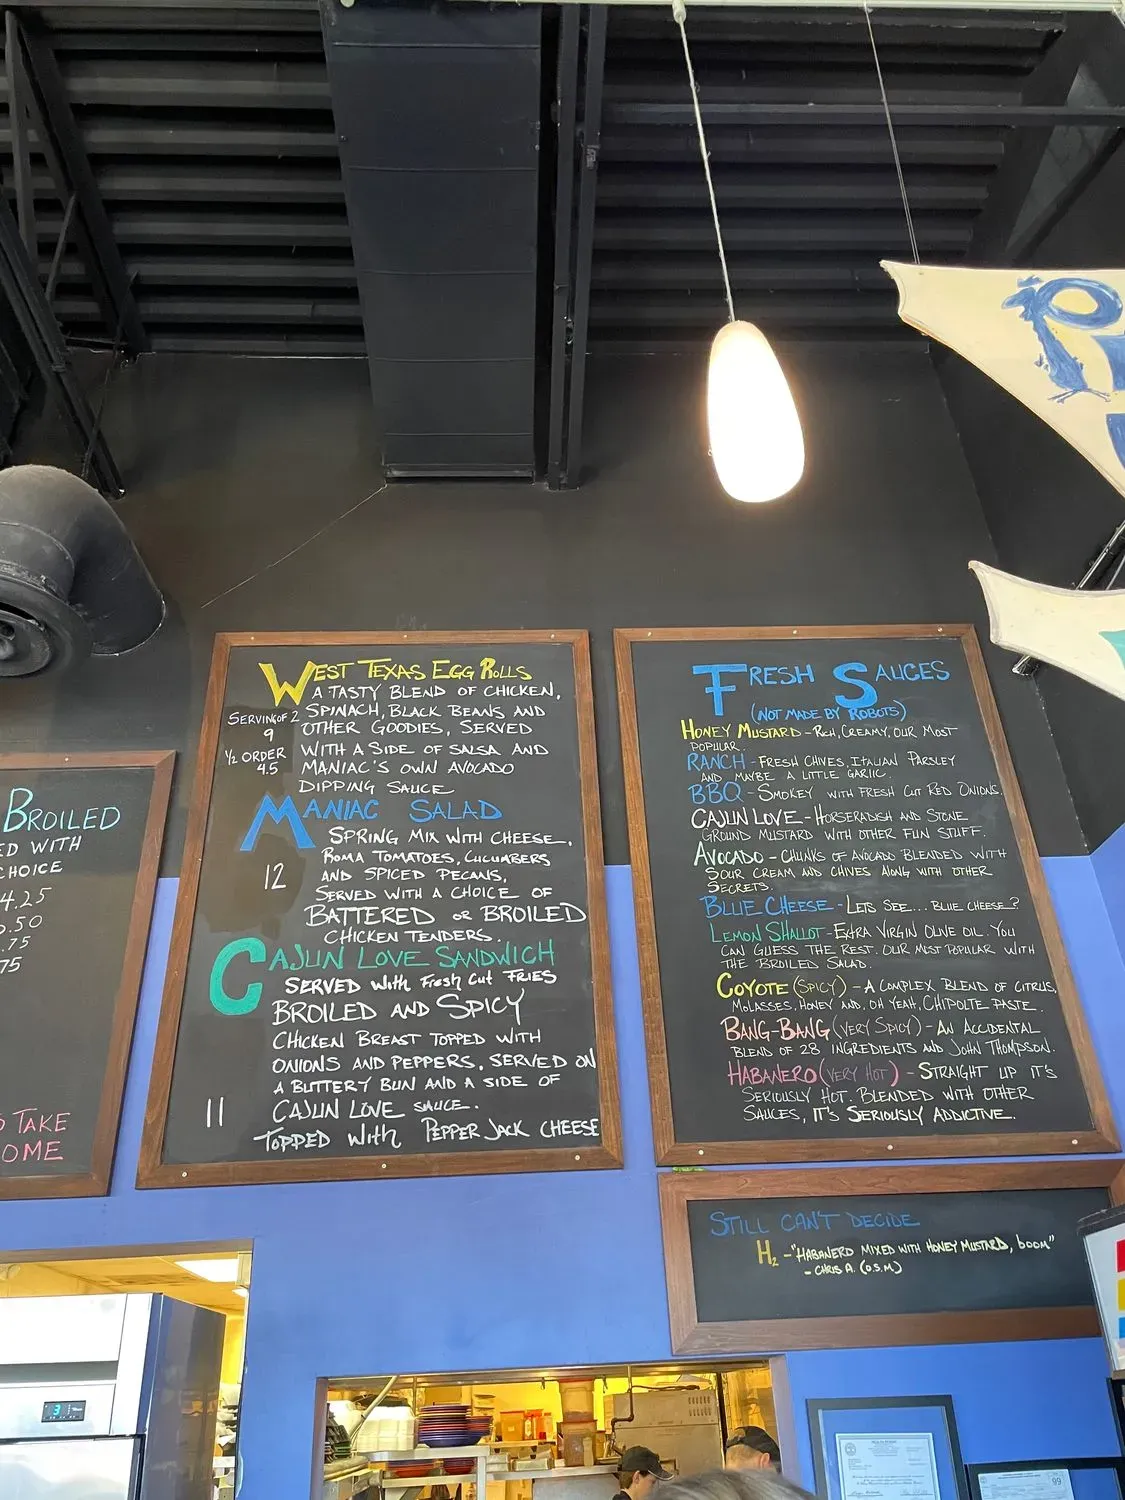 BROILED
ED WITH
CHOICE
4.25
.50
.75
75
TAKE
OME
WEST TEXAS EGG ROLLS
A TASTY BLEND OF CHICKEN,
SPINACH, BLACK BEANS AND
OTHER GOODIES, SERVED
WITH A SIDE OF SALSA AND
MANIAC'S OWN AVOCADO
DIPPING SAUCE
SERVING OF 2
9
1/2 ORDER
4.5
MANIAC SALAD
SPRING MIX WITH CHEESE,
ROMA TOMATOES, CUCUMBERS
AND SPICED PECANS,
SERVED WITH A CHOICE OF
BATTERED OR BROILED
CHICKEN TENDERS.
12
CAJUN LOVE SANDWICH
SERVED With Fresh Cut FRIES
BROILED AND SPICY
CHICKEN BREAST TOPPED WITH
ONIONS AND PEPPERS, SERVED ON
A BUTTERY BUN AND A SIDE OF
CAJUN LOVE SAUCE.
TOPPED With PEPPER JACK CHEESE
11
FRESH SAUCES
(NOT MADE BY ROBOTS)
HONEY MUSTARD - RICH, CREAMY, OUR MOST
POPULAR.
RANCH - FRESH CHIVES, ITALIAN PARSLEY
AND MAYBE A LITTLE GARLIC.
BBQ - SMOKEY WITH FRESH CUT RED ONIONS.
CAJUN LOVE - HORSERADISH AND STONE
GROUND MUSTARD WITH OTHER FUN STUFF.
AVOCADO - CHUNKS OF AVOCADO BLENDED WITH
SOUR CREAM AND CHIVES ALONG WITH OTHER
SECRETS.
BLUE CHEESE - LETS SEE... BLUE CHEESE?
LEMON SHALLOT - EXTRA VIRGIN OLIVE OIL. YOU
CAN GUESS THE REST. OUR MOST POPULAR WITH
THE BROILED SALAD.
COYOTE (SPICY) - A COMPLEX BLEND OF CITRUS,
MOLASSES, HONEY AND, OH YEAH, CHIPOLTE PASTE.
BANG-BANG (VERY SPICY) - AN ACCIDENTAL
BLEND OF 28 INGREDIENTS AND JOHN THOMPSON.
HABANERO (VERY HOT) - STRAIGHT UP IT'S
SERIOUSLY HOT. BLENDED WITH OTHER
SAUCES, IT'S SERIOUSLY ADDICTIVE.
STILL CAN'T DECIDE
H2 - "HABANERO MIXED WITH HONEY MUSTARD, boom"
- CHRIS A. (O.S.M)
3
99